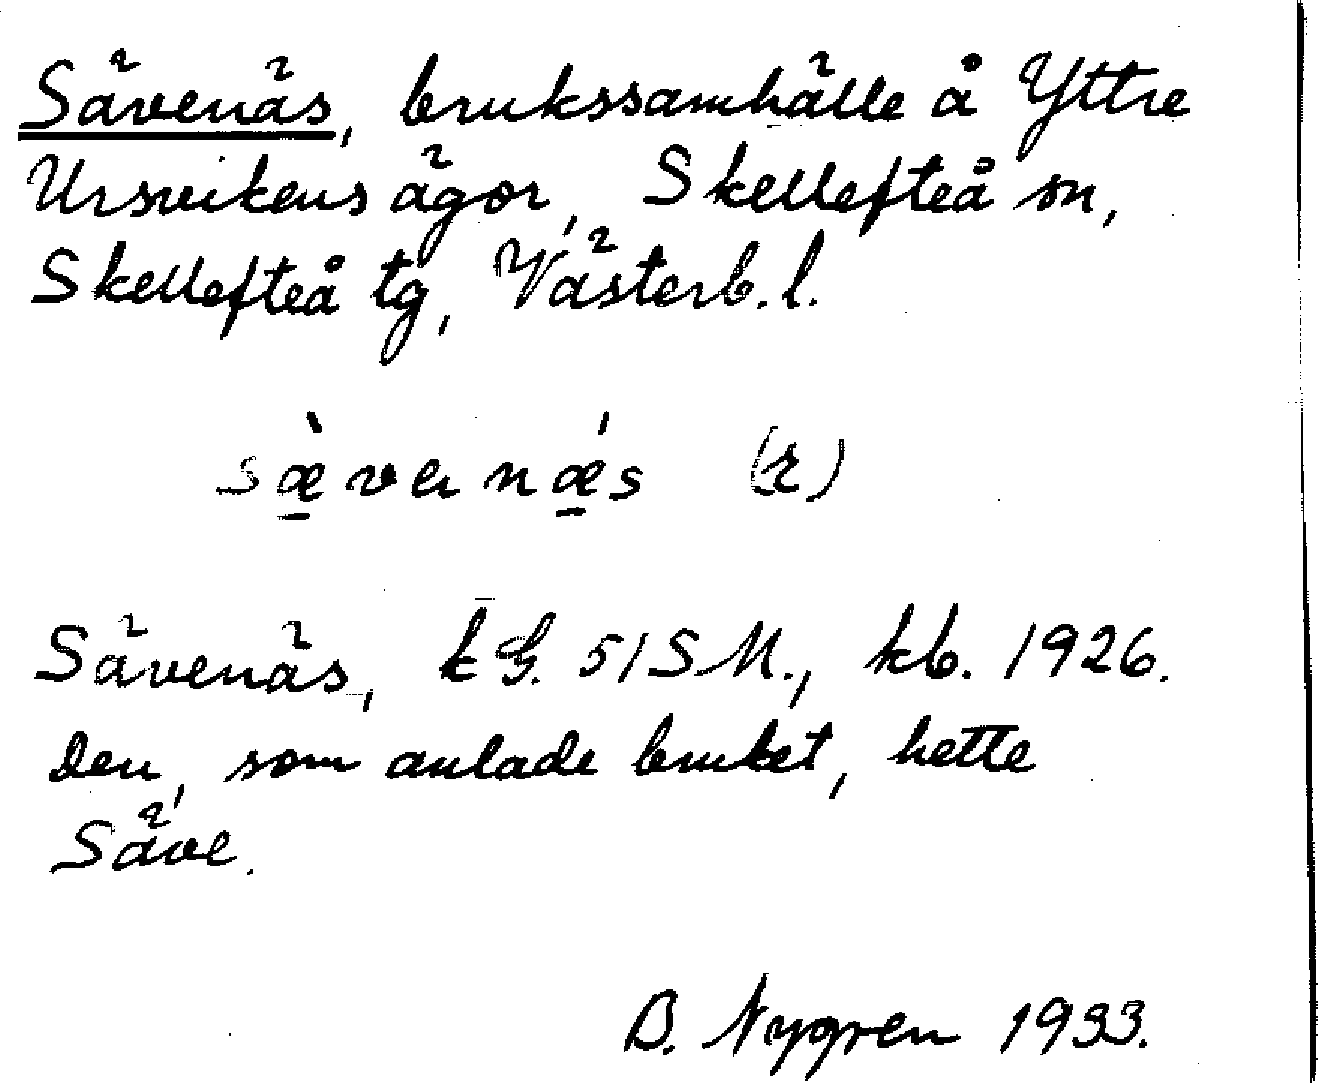 Sävenäs, brukssamhälle å Yttre
Ursvikens ägor, Skellefteå sn,
Skellefteå tg, Västerb. l.
sæ̀venǽs (r)
Sävenäs, kG. 51 SM., kb. 1926.
Den, som anlade bruket, hette
Säve.
B. Nygren 1933.